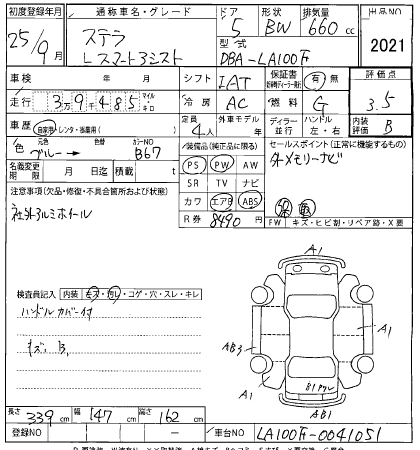 初度登録年月 通称車名・グレード ドア 形状 排気量 出品NO
25年9月 ステラ 5 BW 660cc 2021
Lスマートアシスト 型式 DBA-LA100F
車検 年 月 シフト IAT 保証書 有 無 評価点
走行 3万9千485 マイル キロ 冷房 AC 燃料 G 3.5
車歴 自家用・レンタ・ 定員 4人 外車モデル 年 ディーラー 並行 ハンドル 左・右 内装評価 B
色 元色 ブルー→ 色替 カラーNO B67
装備品(純正品に限る) セールスポイント(正常に機能するもの)
PS PW AW 外メモリーナビ
名義変更期限 月 日迄 積載 t SR TV ナビ
注意事項(欠品・修復・不具合箇所および状態) カワ エアB ABS
社外アルミホイール R券 8490円
FW キズ・ヒビ割・リペア跡・X要
検査員記入 内装 キズ・汚レ・コゲ・穴・スレ・キレ
ハンドルカバー付
キズ B,
A1
A1
AB3
A1
B1
AB1
長さ 339cm 幅 147cm 高さ 162cm
登録NO ― 車台NO LA100F-0041051